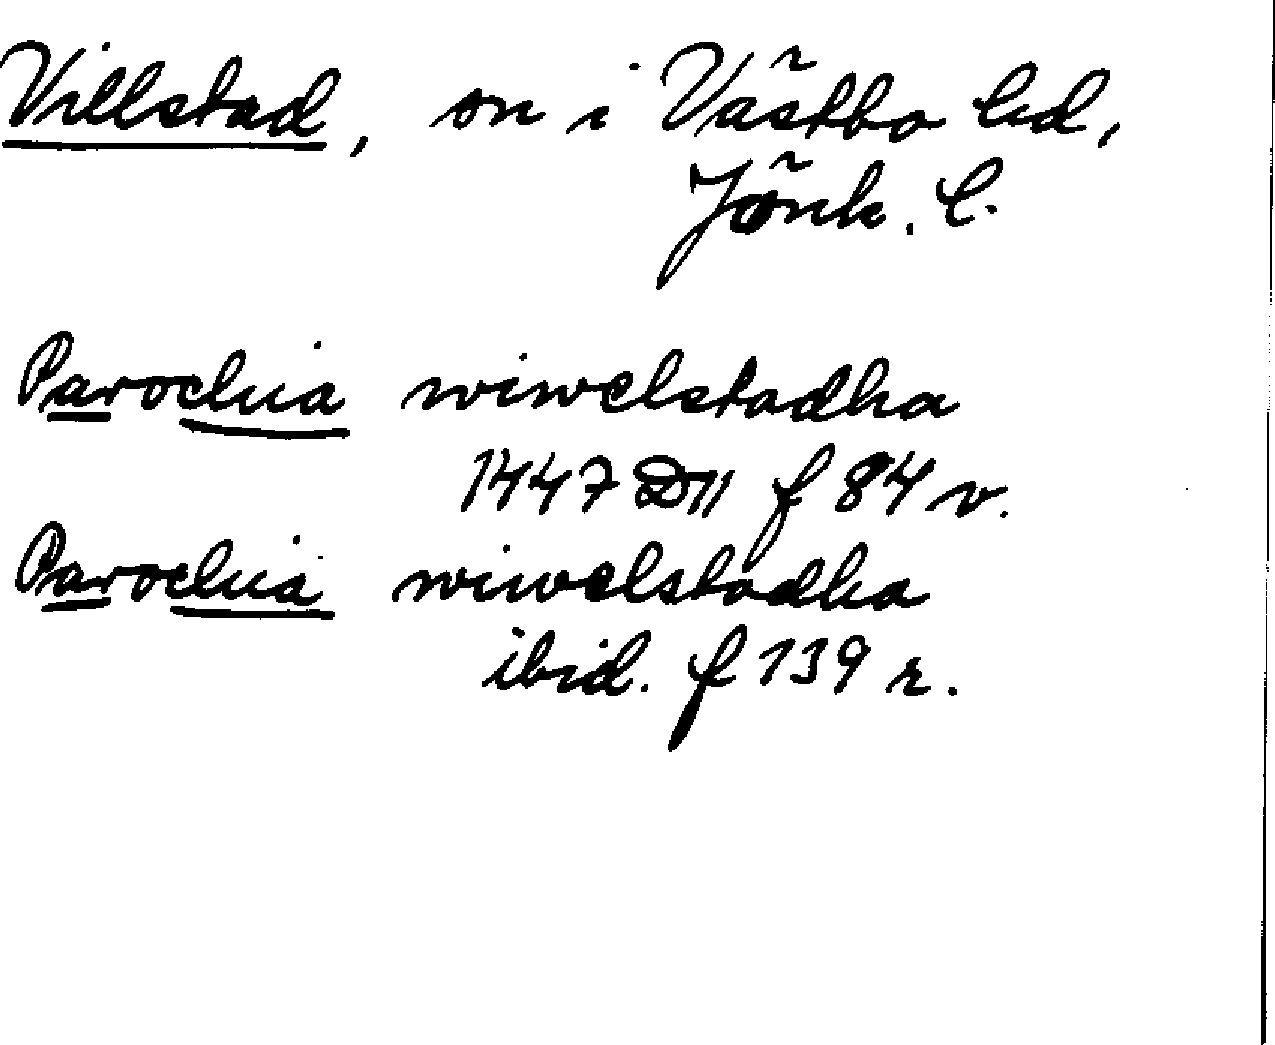 Villstad, sn i Västbo hd,
Jönk. l.
Parochia wiwelstadha
1447 D11 f 84 v.
Parochia wiwelstadha
ibid. f 139 r.